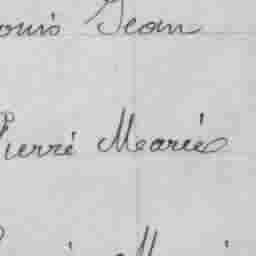 ouis Jean
Pierre Marie